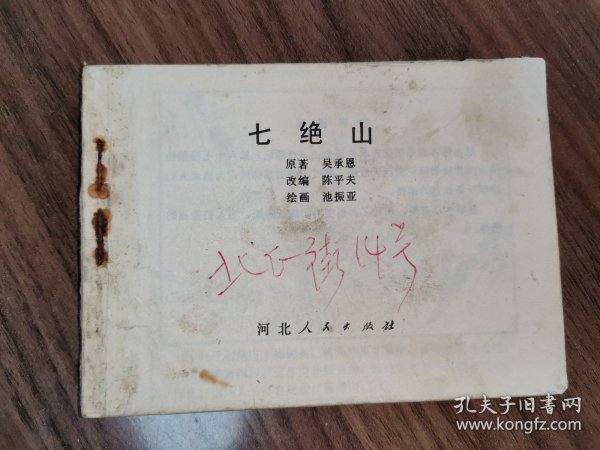 七绝山
原著 吴承恩
改编 陈平夫
绘画 池振亚
街14号
河北人民出版社
孔夫子旧书网
www.kongfz.com